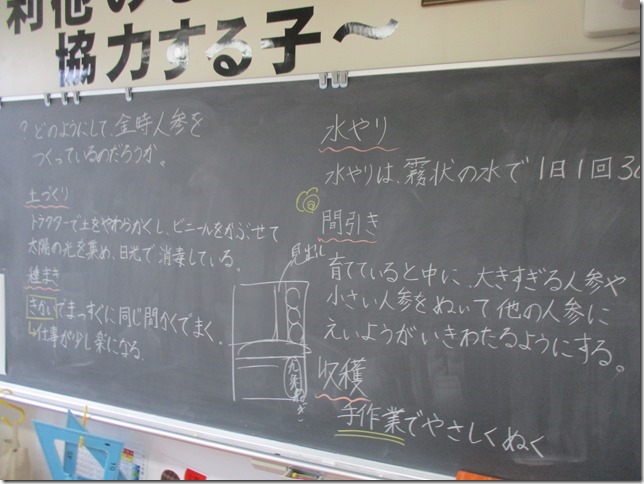 協力する子〜
?どのようにして、金時人参を
つくっているのだろうか。
土づくり
トラクターで土をやわらかくし、ビニールをかぶせて
太陽の光を集め、日光で消毒している。
種まき
きかいでまっすぐに同じ間かくでまく。
↳仕事が少し楽になる。
見出し
九条ねぎ
水やり
水やりは、霧状の水で1日1回30
間引き
育てていると中に、大きすぎる人参や
小さい人参をぬいて他の人参に
えいようがいきわたるようにする。
収穫
手作業でやさしくぬく